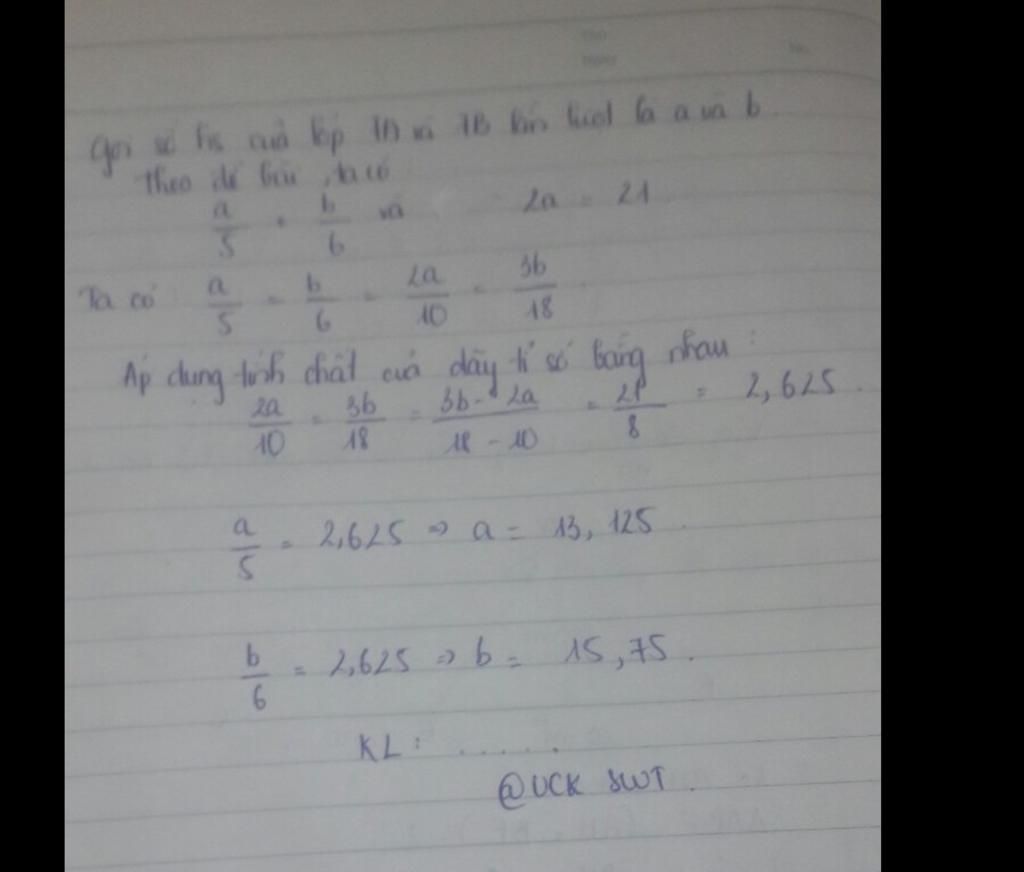 Gọi số hs của lớp 7A và 7B lần lượt là a và b.
Theo đề bài, ta có
a/5 = b/6 và 2a = 21
Ta có a/5 = b/6 = 2a/10 = 3b/18.
Áp dụng tính chất của dãy tỉ số bằng nhau:
2a/10 = 3b/18 = 3b - 2a/18 - 10 = 21/8 = 2,625.
a/5 = 2,625 => a = 13,125.
b/6 = 2,625 => b = 15,75.
KL: .....
@UCK SWT.